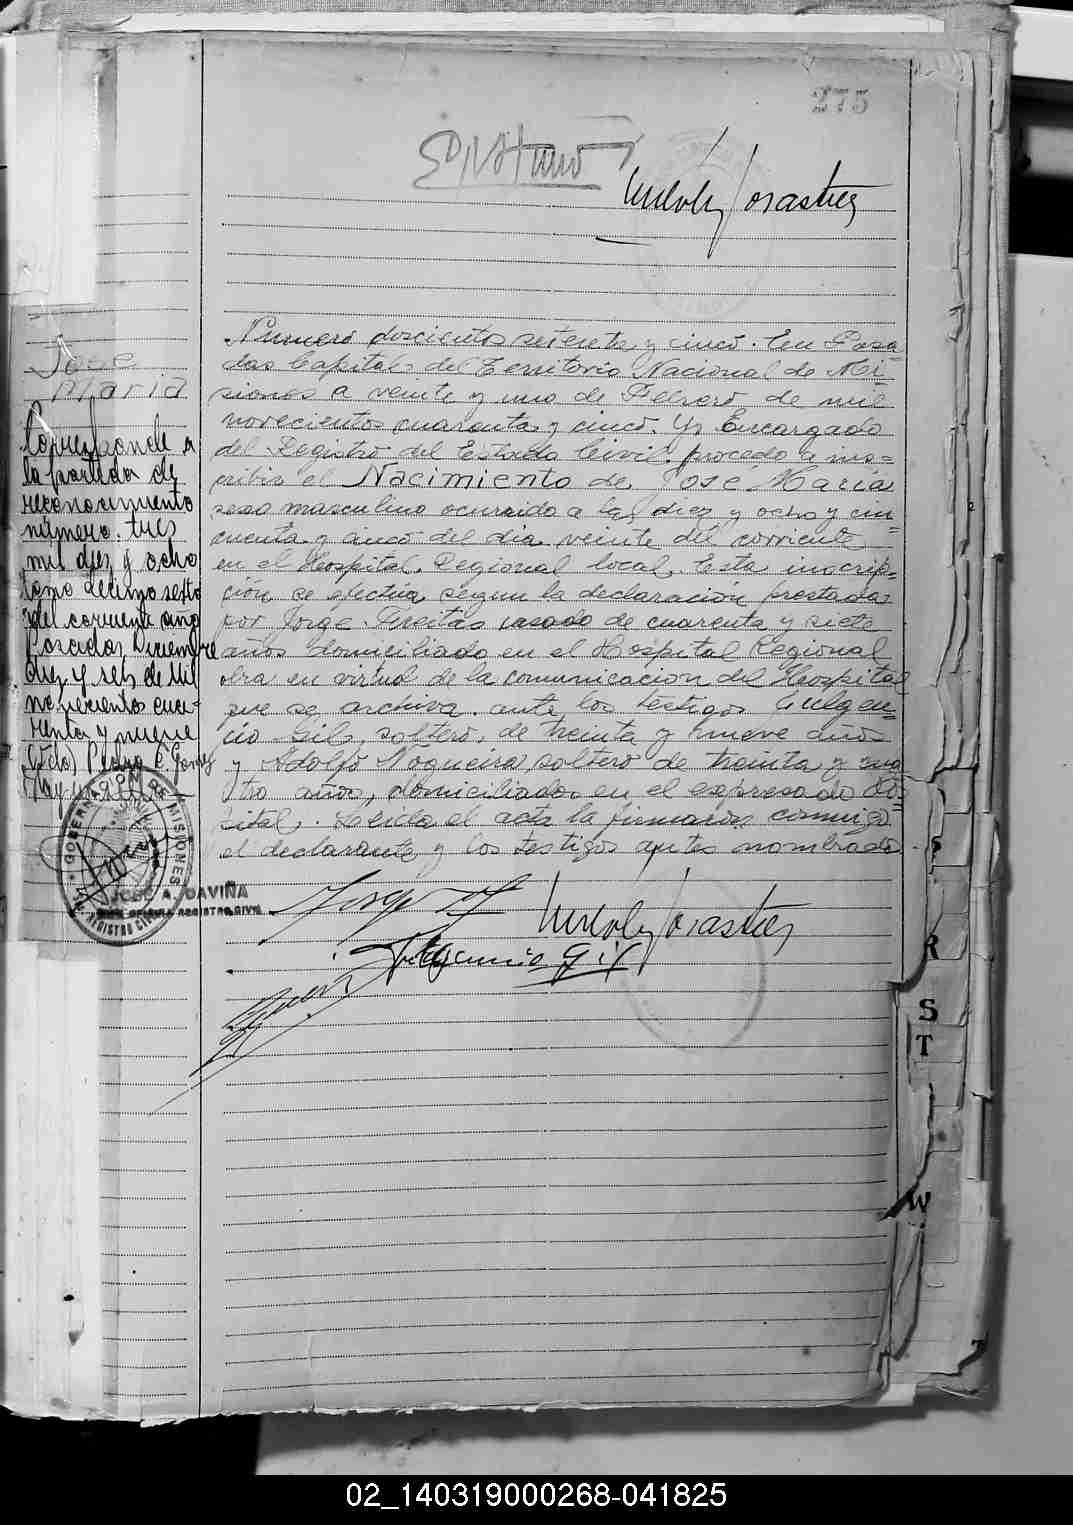 275
José
Maria
Corresponde a
la partida de
reconocimiento
número tres
mil diez y ocho
tomo decimo sexto
del corriente año
Posadas, Diciembre
diez y seis de mil
novecientos cua-
renta y nueve
Fdo, Pedro E. Gomez
GOBERNACIÓN DE MISIONES
REGISTRO CIVIL
JOSÉ A. GAVIÑA
JEFE OFICINA REGISTRO CIVIL
Numero doscientos setenta y cinco. En Posa-
das Capital del Territorio Nacional de Mi-
siones a veinte y uno de Febrero de mil
novecientos cuarenta y cinco. Yo Encargado
del Registro del Estado Civil, procedo a ins=
cribir el Nacimiento de José Maria
sexo masculino ocurrido a las diez y ocho y cin-
cuenta y cinco del dia veinte del corriente
en el Hospital Regional local. Esta inscrip=
ción se efectua segun la declaración prestada
por Jorge Freitas casado de cuarenta y siete
años domiciliado en el Hospital Regional
obra en virtud de la comunicacion del Hospital
que se archiva. ante los testigos Fulgen-
cio Gil, soltero, de treinta y nueve años
y Adolfo Nogueira, soltero de treinta y cua
tro años, domiciliados en el expresado Hos-
pital. Leida el acta la firmaron conmigo
el declarante y los testigos antes nombrado
Fulgencio Gil
R
S
T
W
02_140319000268-041825